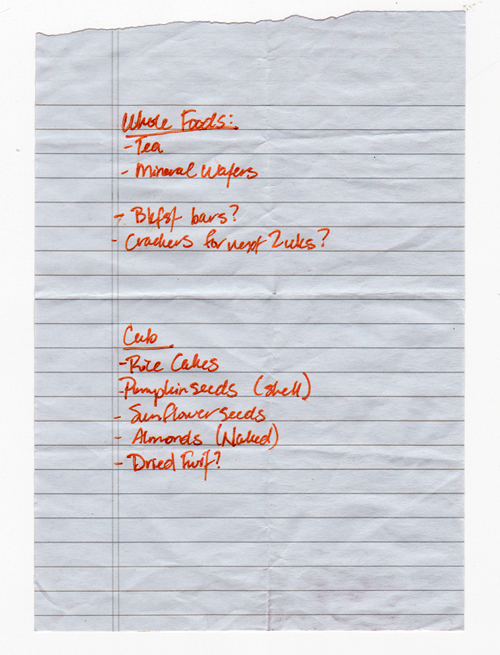 Whole Foods:
- Tea
- Mineral Wafers
- Bkfst bars?
- Crackers for next 2 wks?
Cub
- Rice Cakes
- Pumpkin seeds (shell)
- Sunflower seeds
- Almonds (Naked)
- Dried Fruit?